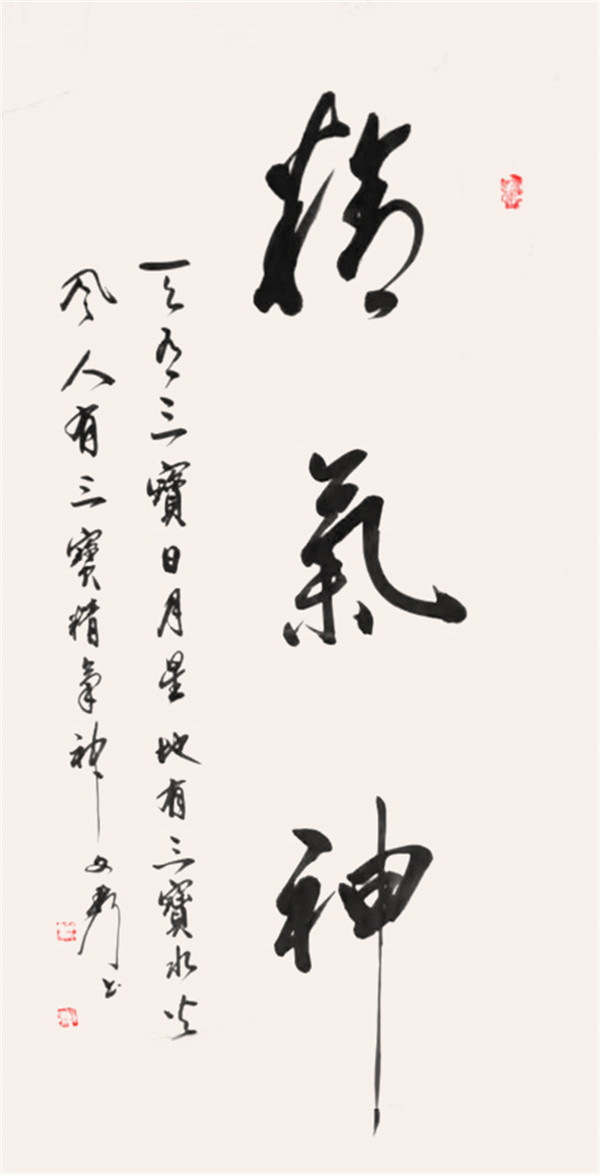 精氣神
天有三寶日月星地有三寶水火
風人有三寶精氣神 文 书